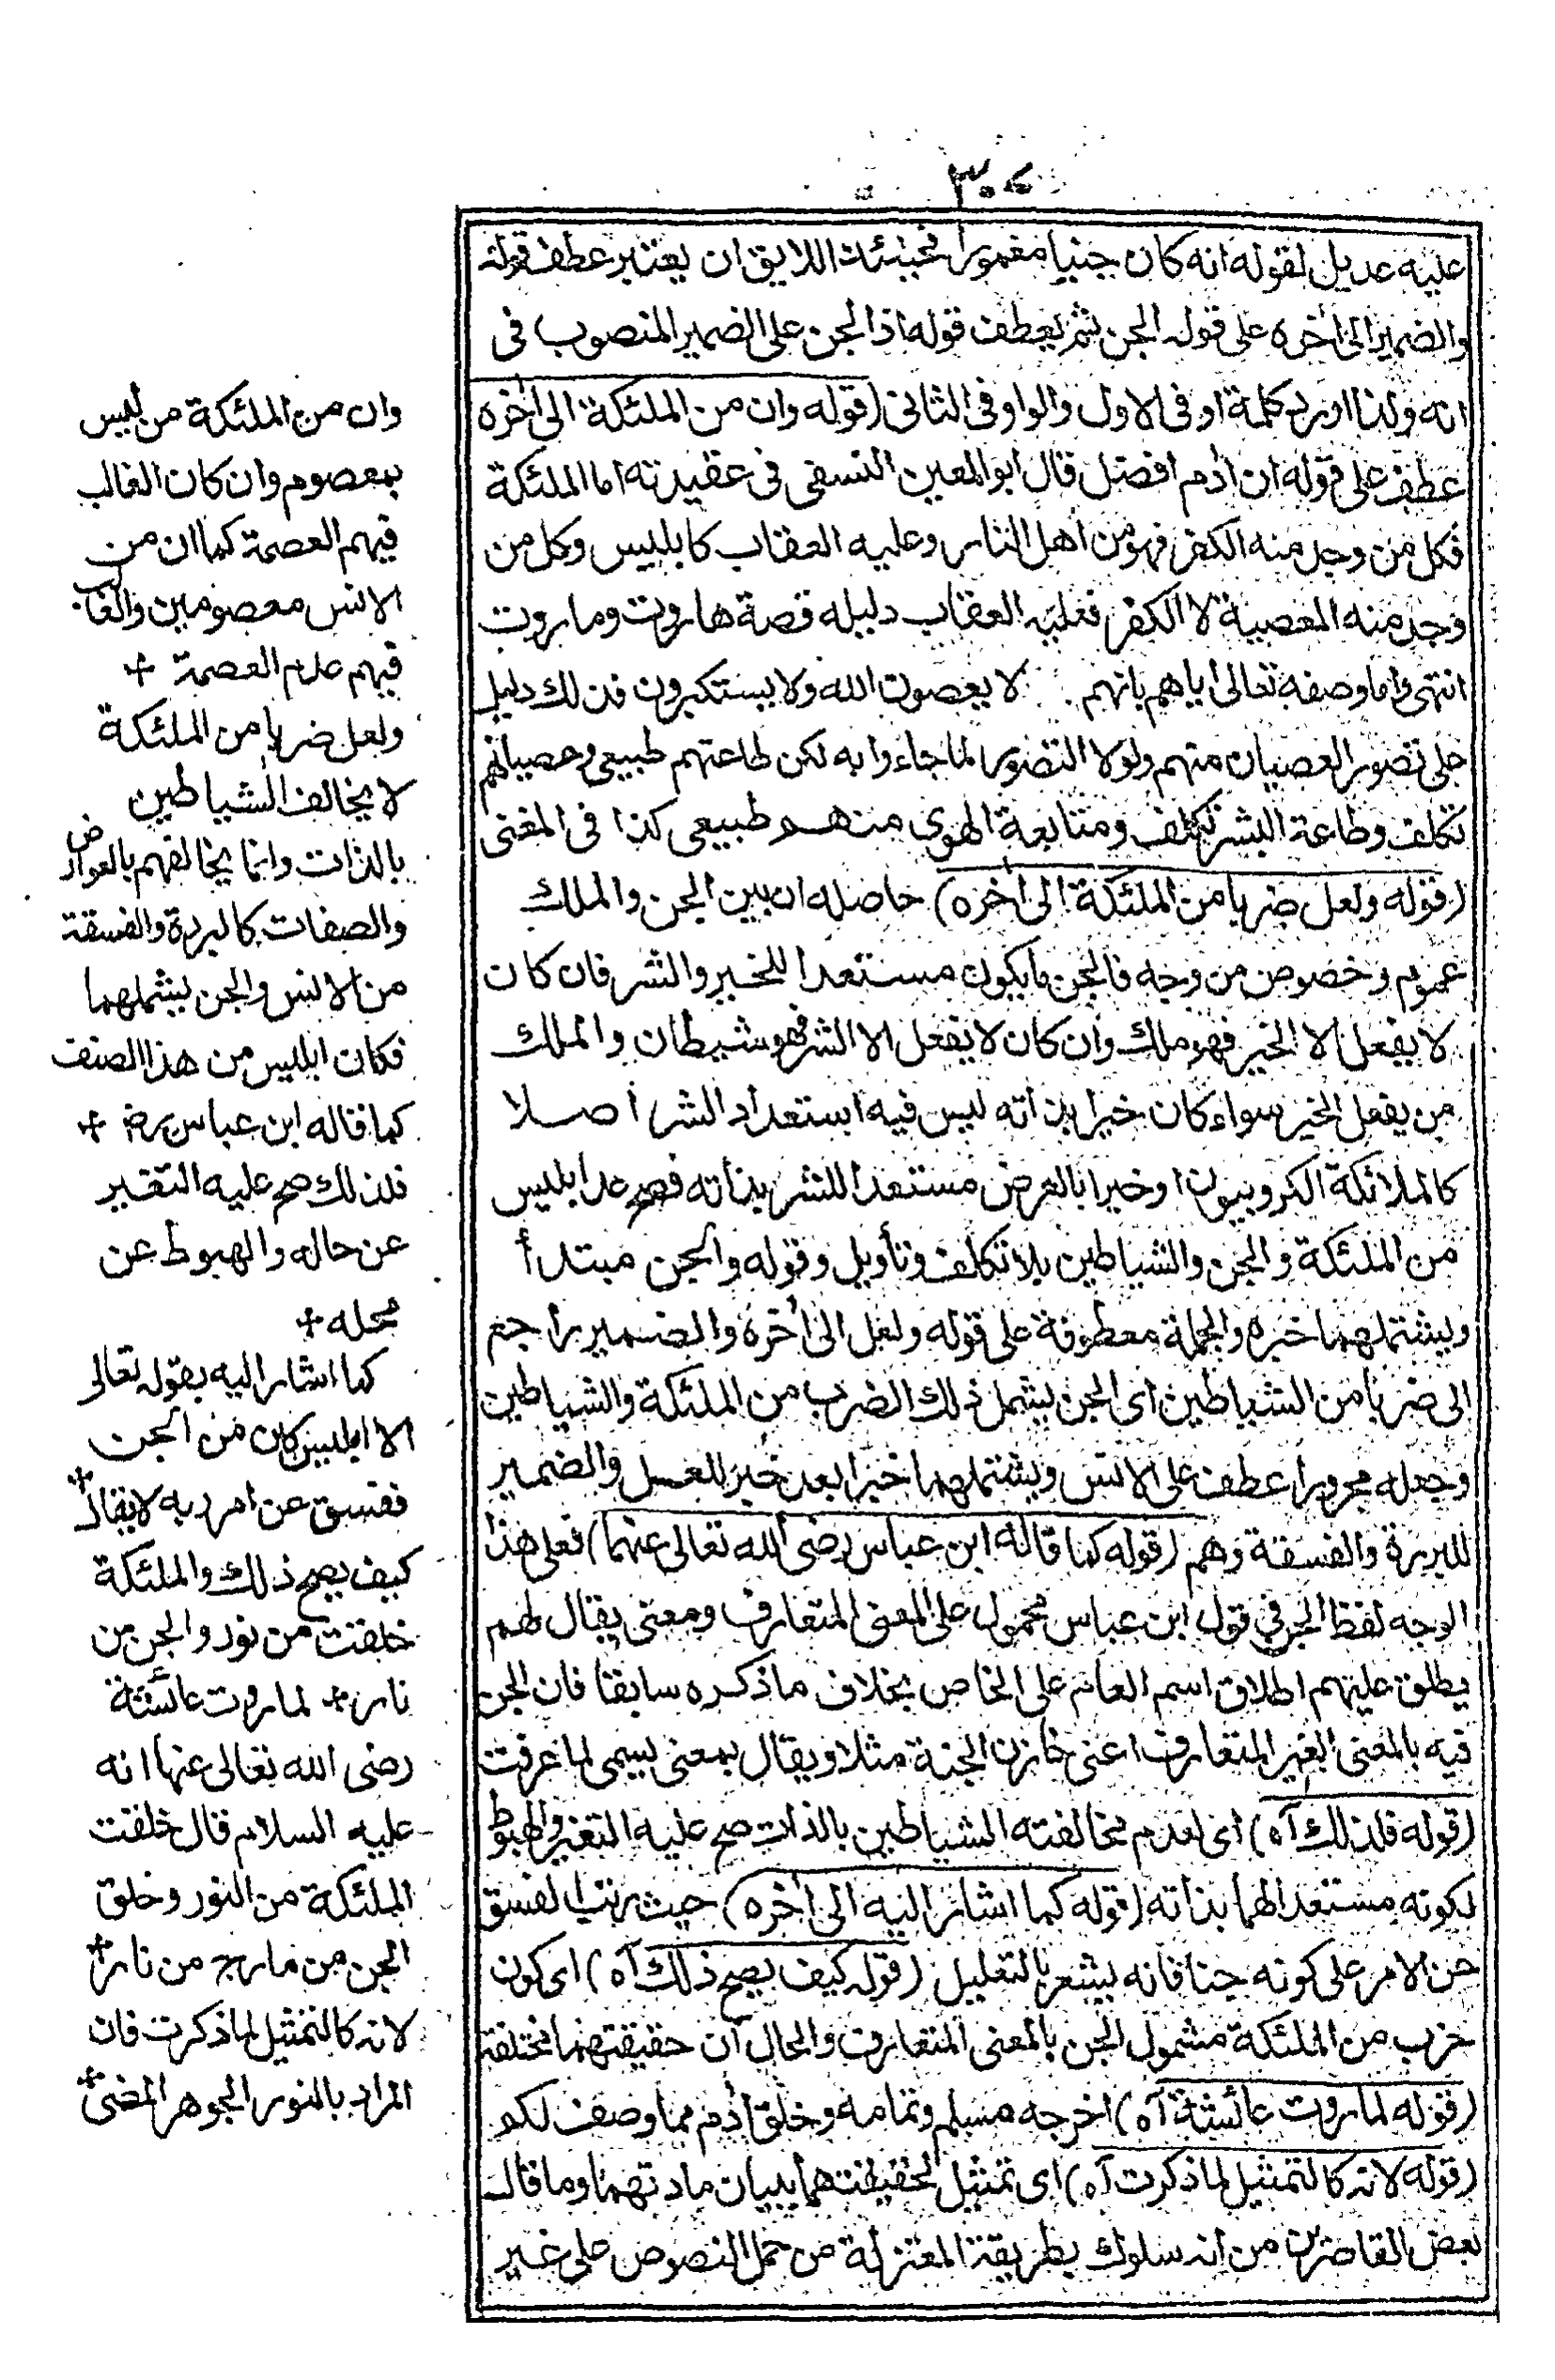 ٣٠٧
عليه عديل لقوله انه كان جنيا مغمورا فحينئذ اللايق ان يعتبر عطف قوله
والضمير الى اخره على قوله الجن ثم يعطف قوله اذ الجن على الضمير المنصوب فى
انه ولذا اورد كلمة او فى الاول والواو فى الثانى (قوله وان من الملئكة الى اخره
عطف على قوله ان ادم افضل قال ابو المعين النسفى فى عقيدته اما الملئكة
فكل من وجد منه الكفر فهو من اهل النار وعليه العقاب كابليس وكل من
وجد منه المعصية لا الكفر فعليه العقاب دليله قصة هاروت وماروت
انتهى واما وصفه تعالى اياهم بانهم لا يعصون الله ولا يستكبرون فذلك دليل
على تصور العصيان منهم ولولا التصور لما جاءوا به لكن طاعتهم طبيعى وعصيانهم
تكلف وطاعة البشر تكلف ومتابعة الهوى منهم طبيعى كذا فى المغنى
(قوله ولعل ضربا من الملئكة الى اخره) حاصله ان بين الجن والملك
عموم وخصوص من وجه فالجن ما يكون مستعدا للخير والشر فان كان
لا يفعل الا الخير فهو ملك وان كان لا يفعل الا الشر فهو شيطان والملك
من يفعل الخير سواء كان خيرا بذاته ليس فيه استعداد الشر اصلا
كالملائكة الكروبيون او خيرا بالعرض مستعدا للشر بذاته فصح عد ابليس
من الملئكة والجن والشياطين بلا تكلف وتأويل وقوله والجن مبتدأ
ويشتملهما خبره والجملة معطوفة على قوله ولعل الى اخره والضمير راجع
الى ضربا من الشياطين اى الجن يشمل ذلك الضرب من الملئكة والشياطين
وجعله مجرورا عطف على الانس ويشتملهما خبرا بعد خبر للعل والضمير
للبررة والفسقة وهم (قوله كما قاله ابن عباس رضى الله تعالى عنهما) فعلى هذا
الوجه لفظ الجن فى قول ابن عباس محمول على المعنى المتعارف ومعنى يقال لهم
يطلق عليهم اطلاق اسم العام على الخاص بخلاف ما ذكره سابقا فان الجن
فيه بالمعنى الغير المتعارف اعنى خازن الجنة مثلا ويقال بمعنى يسمى لما عرفت
(قوله فلذلك آه) اى لعدم مخالفته الشياطين بالذات صح عليه التغير والهبوط
لكونه مستعدا لهما بذاته (قوله كما اشار اليه الى اخره) حيث رتب الفسق
عن الامر على كونه جنا فانه يشعر بالتعليل (قوله كيف يصح ذلك آه) اى كون
ضرب من الملئكة مشمول الجن بالمعنى المتعارف والحال ان حقيقتهما مختلفة
(قوله لما روت عائشة آه) اخرجه مسلم وتمامه وخلق ادم مما وصف لكم
(قوله لانه كالتمثيل لما ذكرت آه) اى تمثيل لحقيقتهما ببيان مادتهما وما قال
بعض القاصرين من انه سلوك بطريقة المعتزلة من حمل النصوص على غير
وان من الملئكة من ليس
بمعصوم وان كان الغالب
فيهم العصمة كما ان من
الانس معصومين والغالب
فيهم عدم العصمة +
ولعل ضربا من الملئكة
لا يخالف الشياطين
بالذات وانما يخالفهم بالعوارض
والصفات كالبررة والفسقة
من الانس والجن يشملهما
فكان ابليس من هذا الصنف
كما قاله ابن عباس رض +
فلذلك صح عليه التغير
عن حاله والهبوط عن
محله +
كما اشار اليه بقوله تعالى
الا ابليس كان من الجن
ففسق عن امر ربه لا يقال +
كيف يصح ذلك والملئكة
خلقت من نور والجن من
نار + لما روت عائشة
رضى الله تعالى عنها انه
عليه السلام قال خلقت
الملئكة من النور وخلق
الجن من مارج من نار +
لانه كالتمثيل لما ذكرت فان
المراد بالنور الجوهر المضئ +